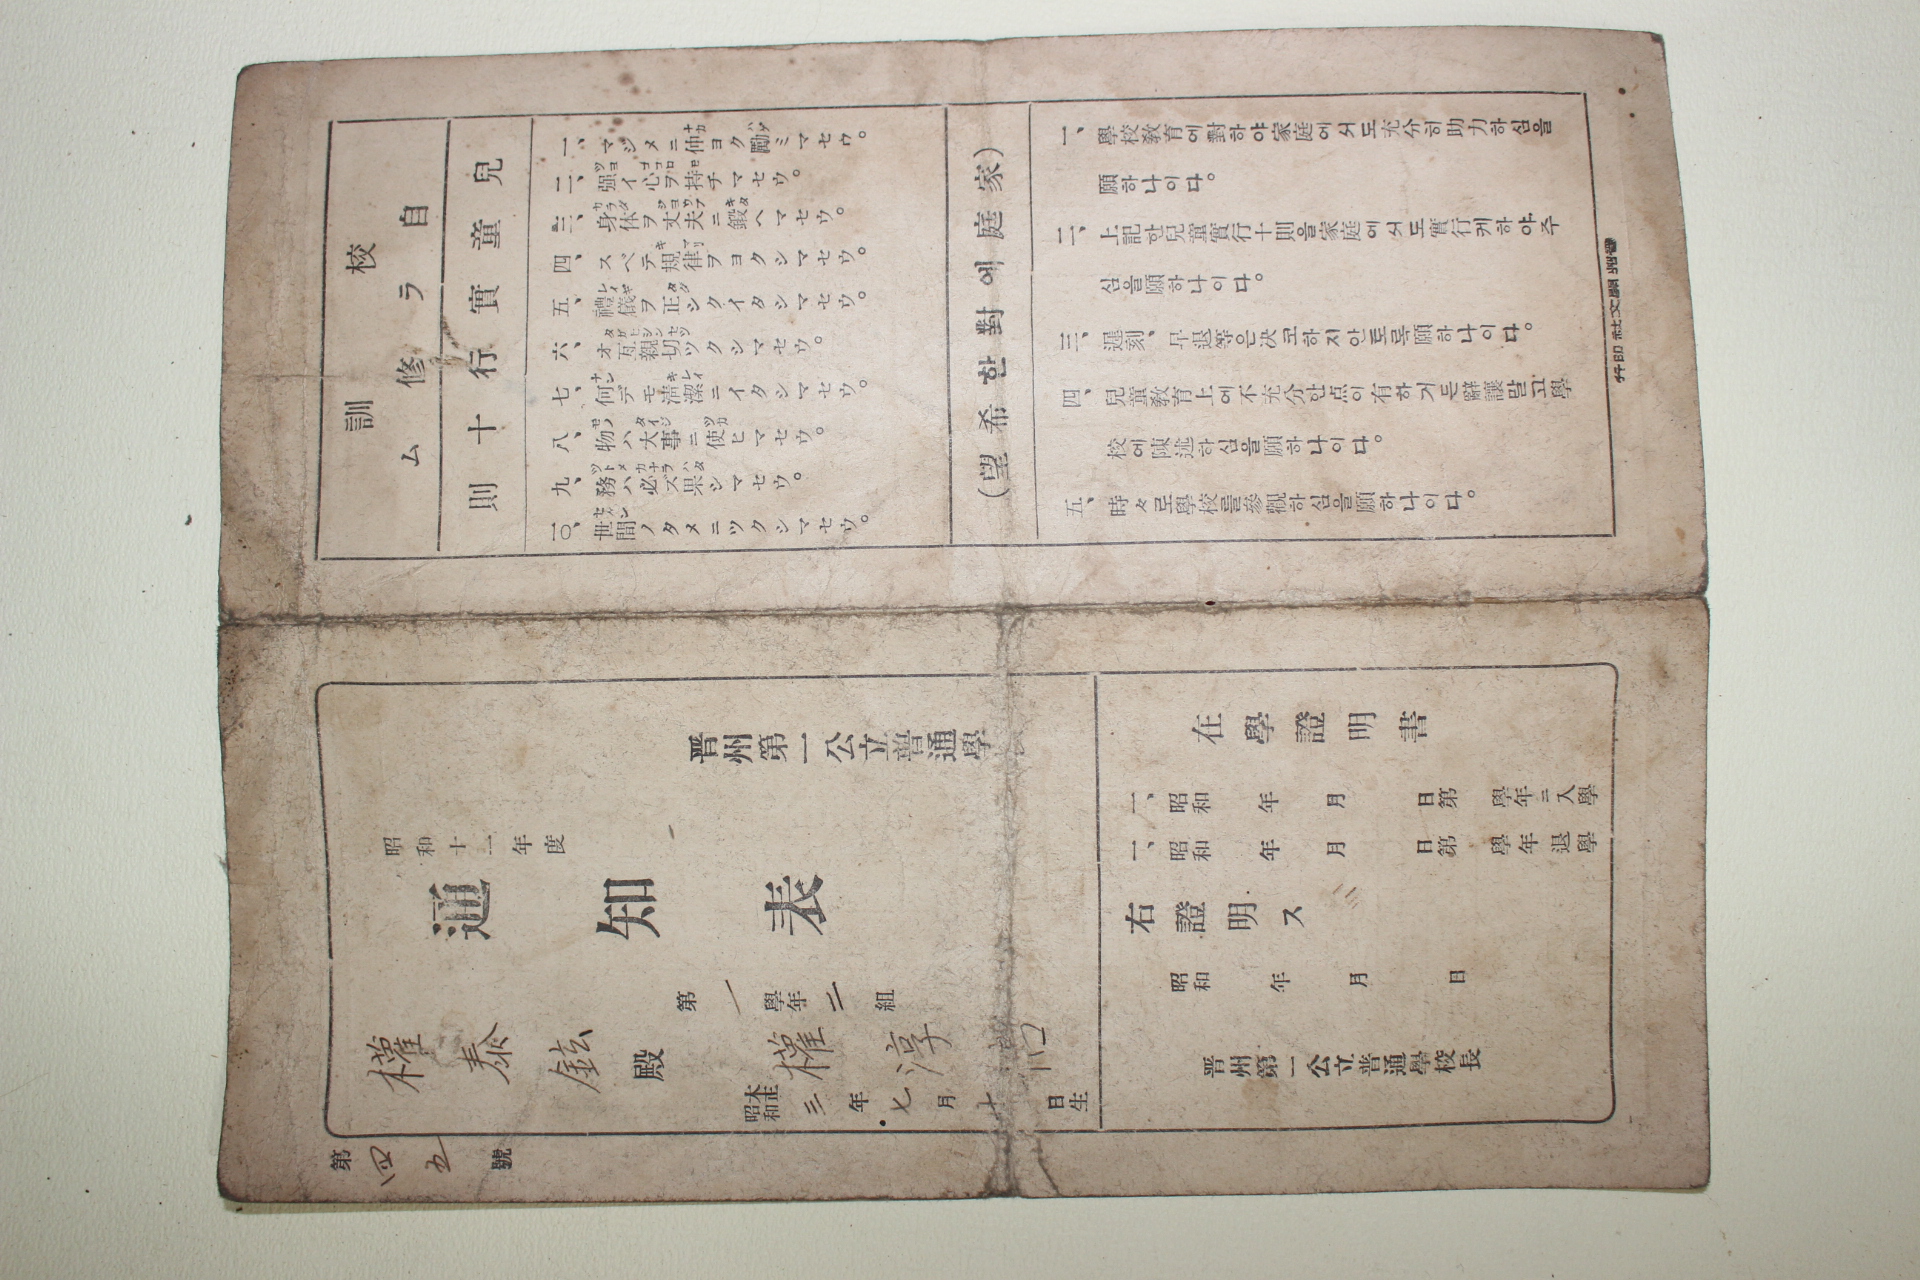 校訓
自ラ修ム
兒童實行十則
一、マジメニ仲ヨク勵ミマセウ。
二、强イ心ヲ持チマセウ。
三、身体ヲ丈夫ニ鍛ヘマセウ。
四、スベテ規律ヲヨクシマセウ。
五、禮儀ヲ正シクイタシマセウ。
六、オ互親切ツクシマセウ。
七、何デモ淸潔ニイタシマセウ。
八、物ハ大事ニ使ヒマセウ。
九、務ハ必ズ果シマセウ。
一〇、世間ノタメニツクシマセウ。
(家庭에對한希望)
一、學校敎育에對하야家庭에서도充分히助力하심을
願하나이다。
二、上記한兒童實行十則을家庭에서도實行케하야주
심을願하나이다。
三、遲刻、早退等은决코하지안토록願하나이다。
四、兒童敎育上에不充分한点이有하거든辭讓말고學
校에陳述하심을願하나이다。
五、時々로學校를參觀하심을願하나이다。
晋州開文社印行
晋州第一公立普通學
昭和十一年度
通知表
第一學年二組
權泰鉉殿
權淳
昭和
大正
三年七月十日生
第四五號
在學證明書
一、昭和 年 月 日第 學年ニ入學
一、昭和 年 月 日第 學年退學
右證明ス
昭和 年 月 日
晋州第一公立普通學校長